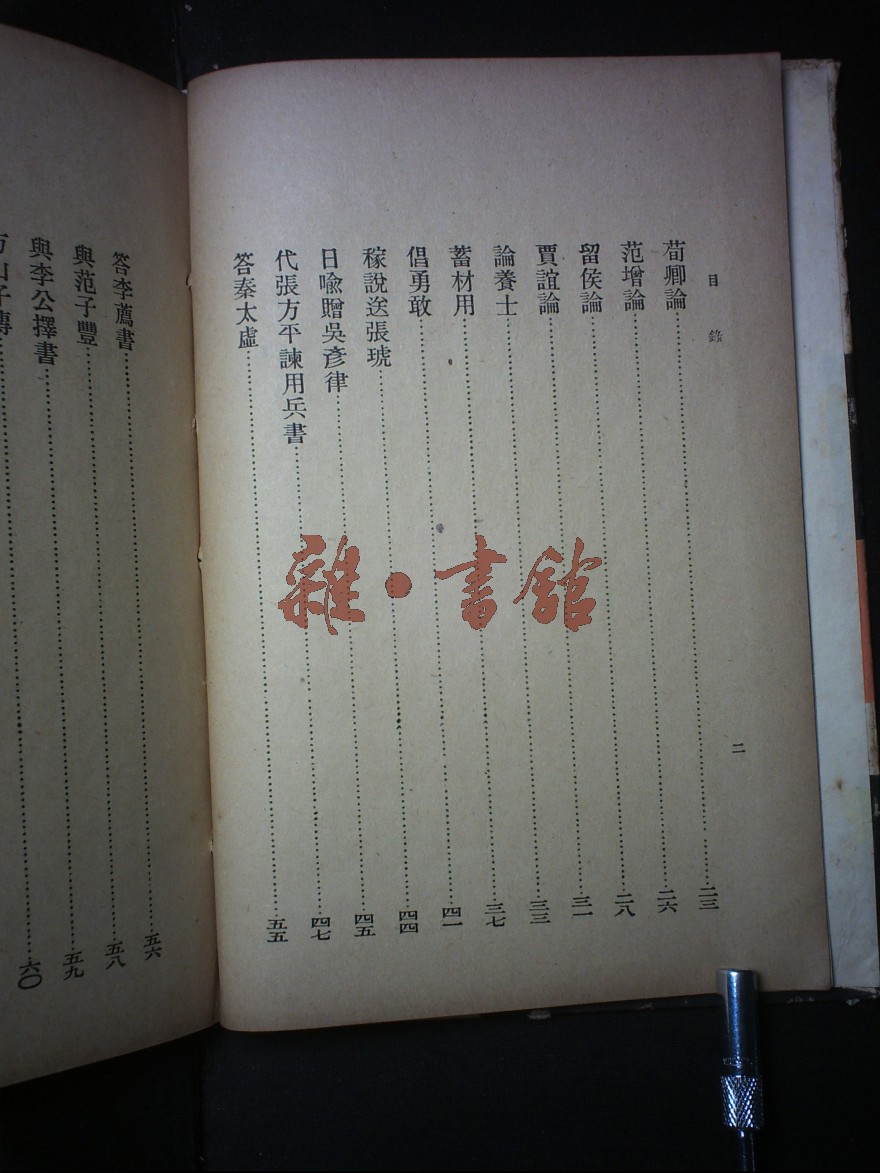 目錄
二
荀卿論……二三
范增論……二六
留侯論……二八
賈誼論……三一
論養士……三三
蓄材用……三七
倡勇敢……四一
稼說送張琥……四四
日喩贈吳彥律……四五
代張方平諫用兵書……四七
答秦太虛……五五
答李薦書……五六
與范子豐……五八
與李公擇書……五九
山子傳……六〇
雜·書館